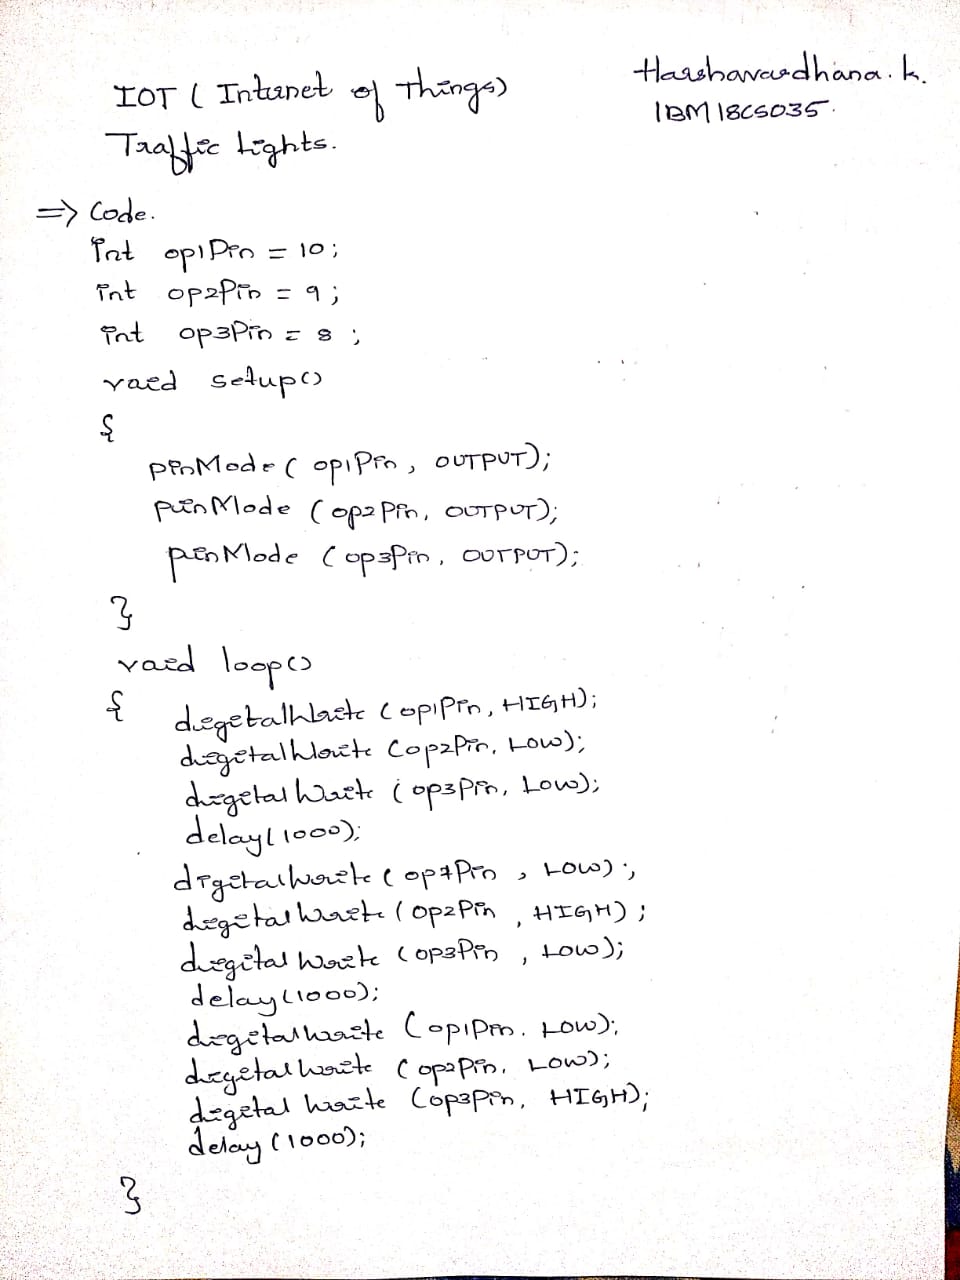 IOT ( Internet of Things)
Harshavardhana. k.
1BM18CS035.
Traffic Lights.
=> Code.
int op1Pin = 10;
int op2Pin = 9;
int op3Pin = 8;
void setup()
{
pinMode( op1Pin, OUTPUT);
pinMode (op2Pin, OUTPUT);
pinMode (op3Pin, OUTPUT);
}
void loop()
{ digitalWrite (op1Pin, HIGH);
digitalWrite (op2Pin, LOW);
digitalWrite (op3Pin, LOW);
delay(1000);
digitalWrite (op1Pin, LOW);
digitalWrite (op2Pin, HIGH);
digitalWrite (op3Pin, LOW);
delay(1000);
digitalWrite (op1Pin. LOW);
digitalWrite (op2Pin, LOW);
digitalWrite (op3Pin, HIGH);
delay (1000);
}